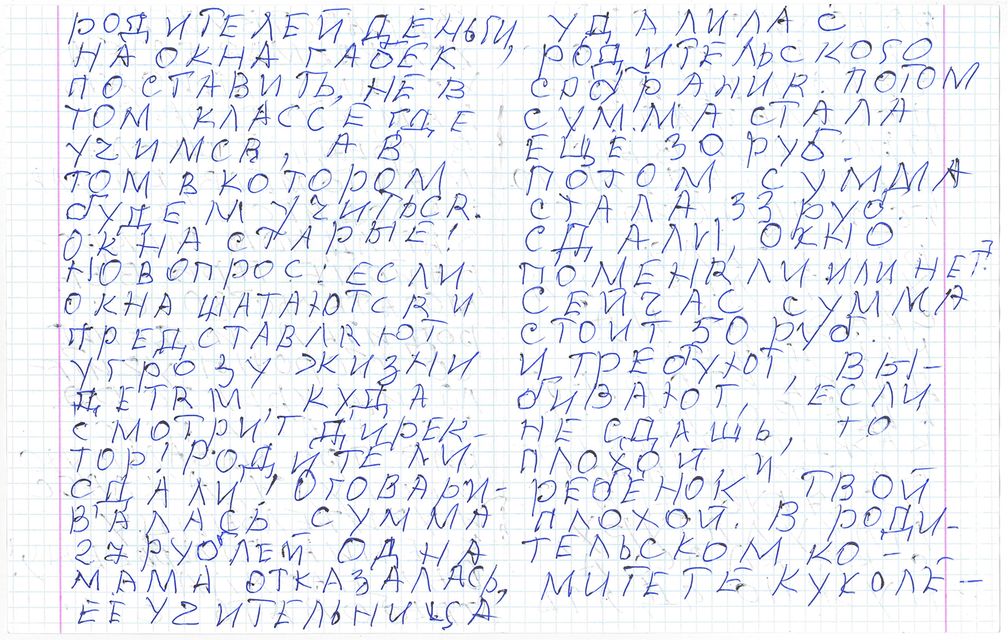 РОДИТЕЛЕЙ ДЕНЬГИ,
НА ОКНА ГАБЕК
ПОСТАВИТЬ, НЕ В
ТОМ КЛАССЕ ГДЕ
УЧИМСЯ, А В
ТОМ В КОТОРОМ
БУДЕМ УЧИТЬСЯ.
ОКНА СТАРЫЕ!
НО ВОПРОС: ЕСЛИ
ОКНА ШАТАЮТСЯ И
ПРЕДСТАВЛЯЮТ
УГРОЗУ ЖИЗНИ
ДЕТЯМ, КУДА
СМОТРИТ ДИРЕК-
ТОР? РОДИТЕЛИ
СДАЛИ! ОГОВАРИ-
ВАЛАСЬ СУММА
27 РУБЛЕЙ ОДНА
МАМА ОТКАЗАЛАСЬ,
ЕЕ УЧИТЕЛЬНИЦА
УДАЛИЛА С
РОДИТЕЛЬСКОГО
СОБРАНИЯ. ПОТОМ
СУММА СТАЛА
ЕЩЕ 30 РУБ.
ПОТОМ СУММА
СТАЛА 33 РУБ.
СДАЛИ, ОКНО
ПОМЕНЯЛИ ИЛИ НЕТ?
СЕЙЧАС СУММА
СТОИТ 50 РУБ.
И ТРЕБУЮТ, ВЫ-
БИВАЮТ, ЕСЛИ
НЕ СДАШЬ, ТО
ПЛОХОЙ, И
РЕБЕНОК ТВОЙ
ПЛОХОЙ. В РОДИ-
ТЕЛЬСКОМ КО-
МИТЕТЕ КУКОЛЕ-